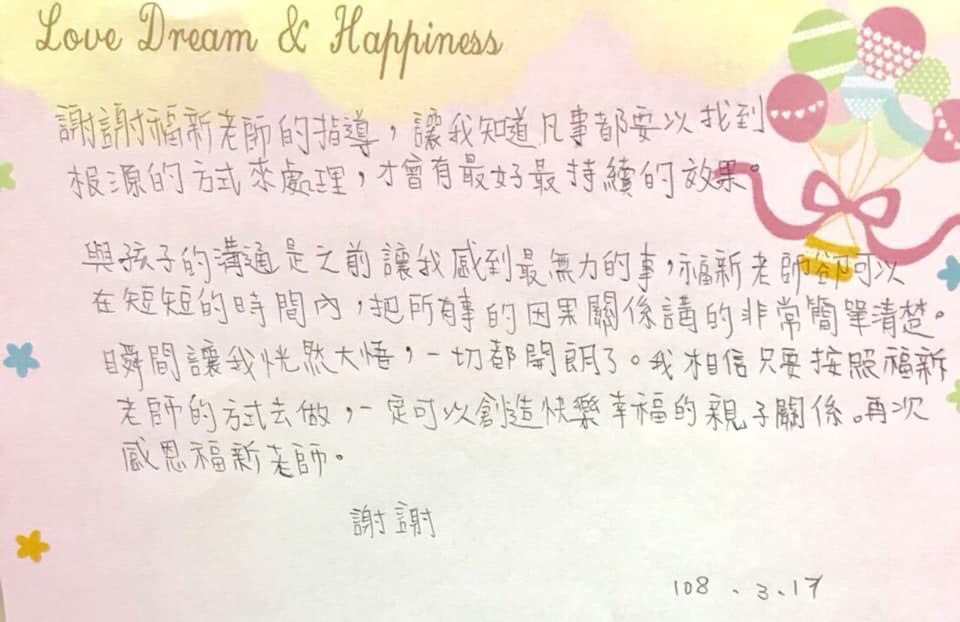 Love Dream & Happiness
謝謝福新老師的指導，讓我知道凡事都要以找到
根源的方式來處理，才會有最好最持續的效果。
與孩子的溝通是之前讓我感到最無力的事，福新老師卻可以
在短短的時間內，把所有事的因果關係講的非常簡單清楚。
瞬間讓我恍然大悟，一切都開朗了。我相信只要按照福新
老師的方式去做，一定可以創造快樂幸福的親子關係。再次
感恩福新老師。
謝謝
108.3.17